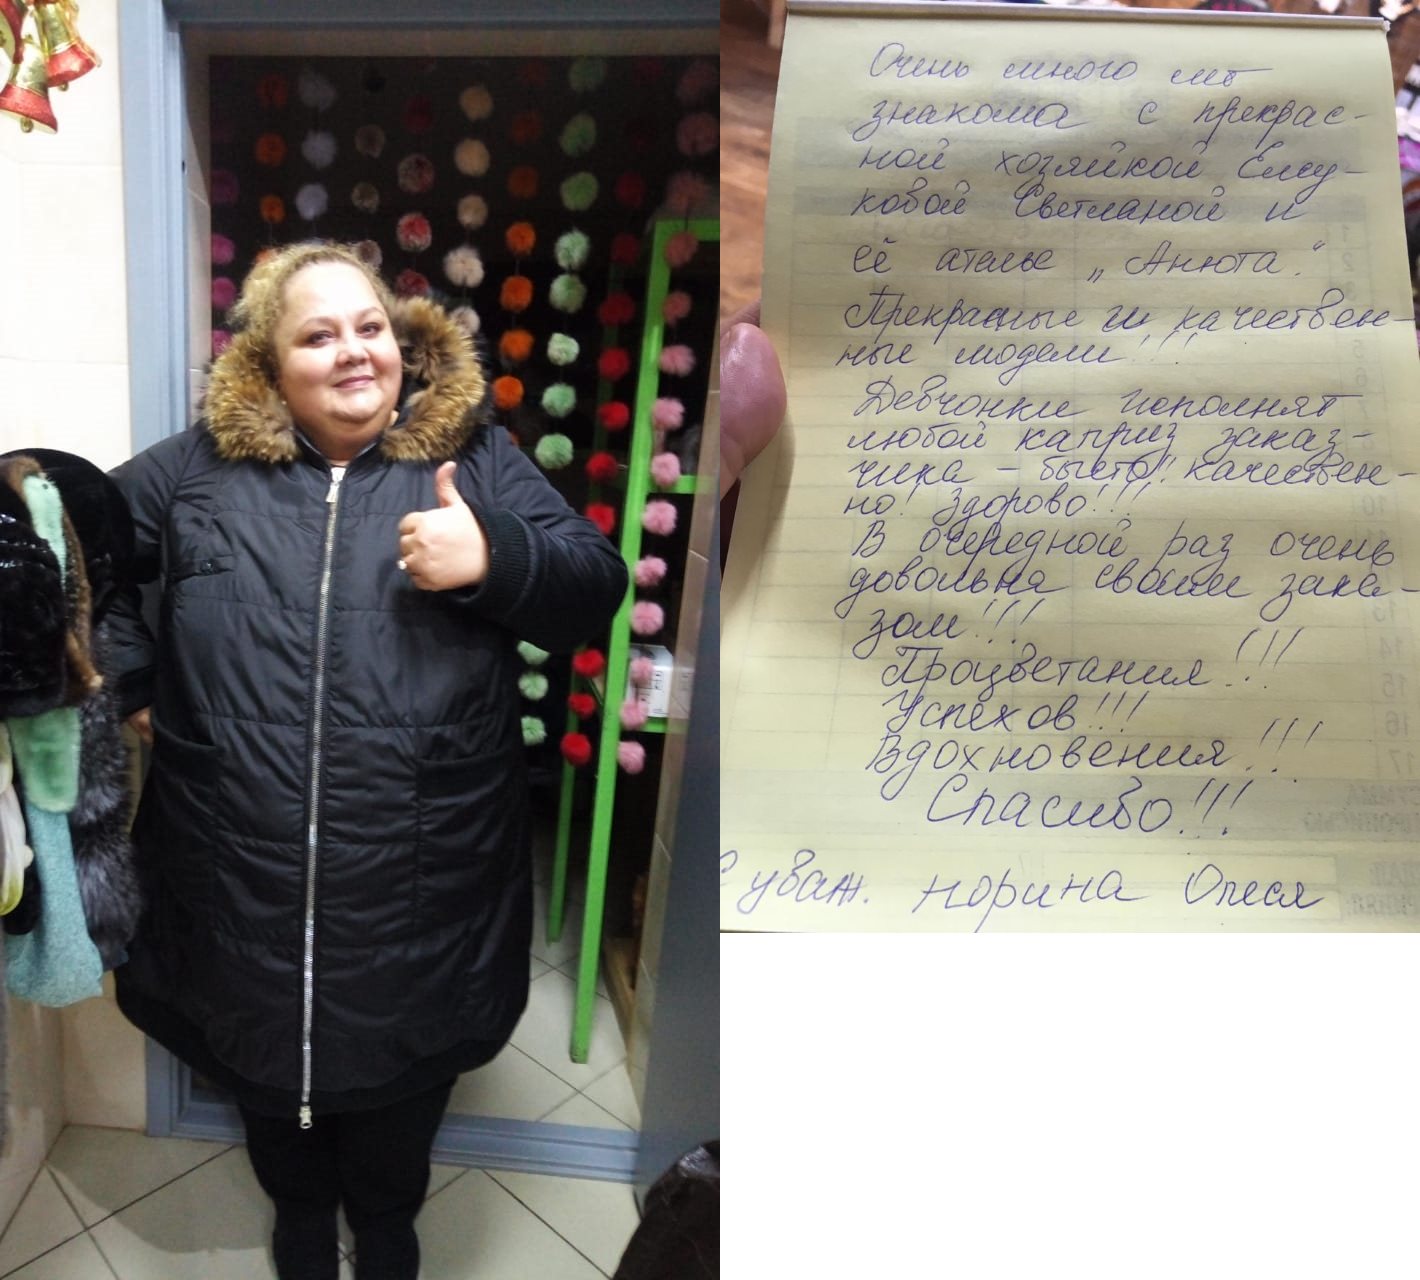 Очень много лет
знакома с прекрас-
ной хозяйкой Ему-
ковой Светланой и
её ателье „Анюта."
Прекрасные и качествен-
ные модели!!!
Девчонки исполнят
любой каприз заказ-
чика - быстро! качествен-
но! здорово!!!
В очередной раз очень
довольна своим зака-
зом!!!
Процветания!!!
Успехов!!!
Вдохновения!!!
Спасибо!!!
С уваж. Норина Олеся